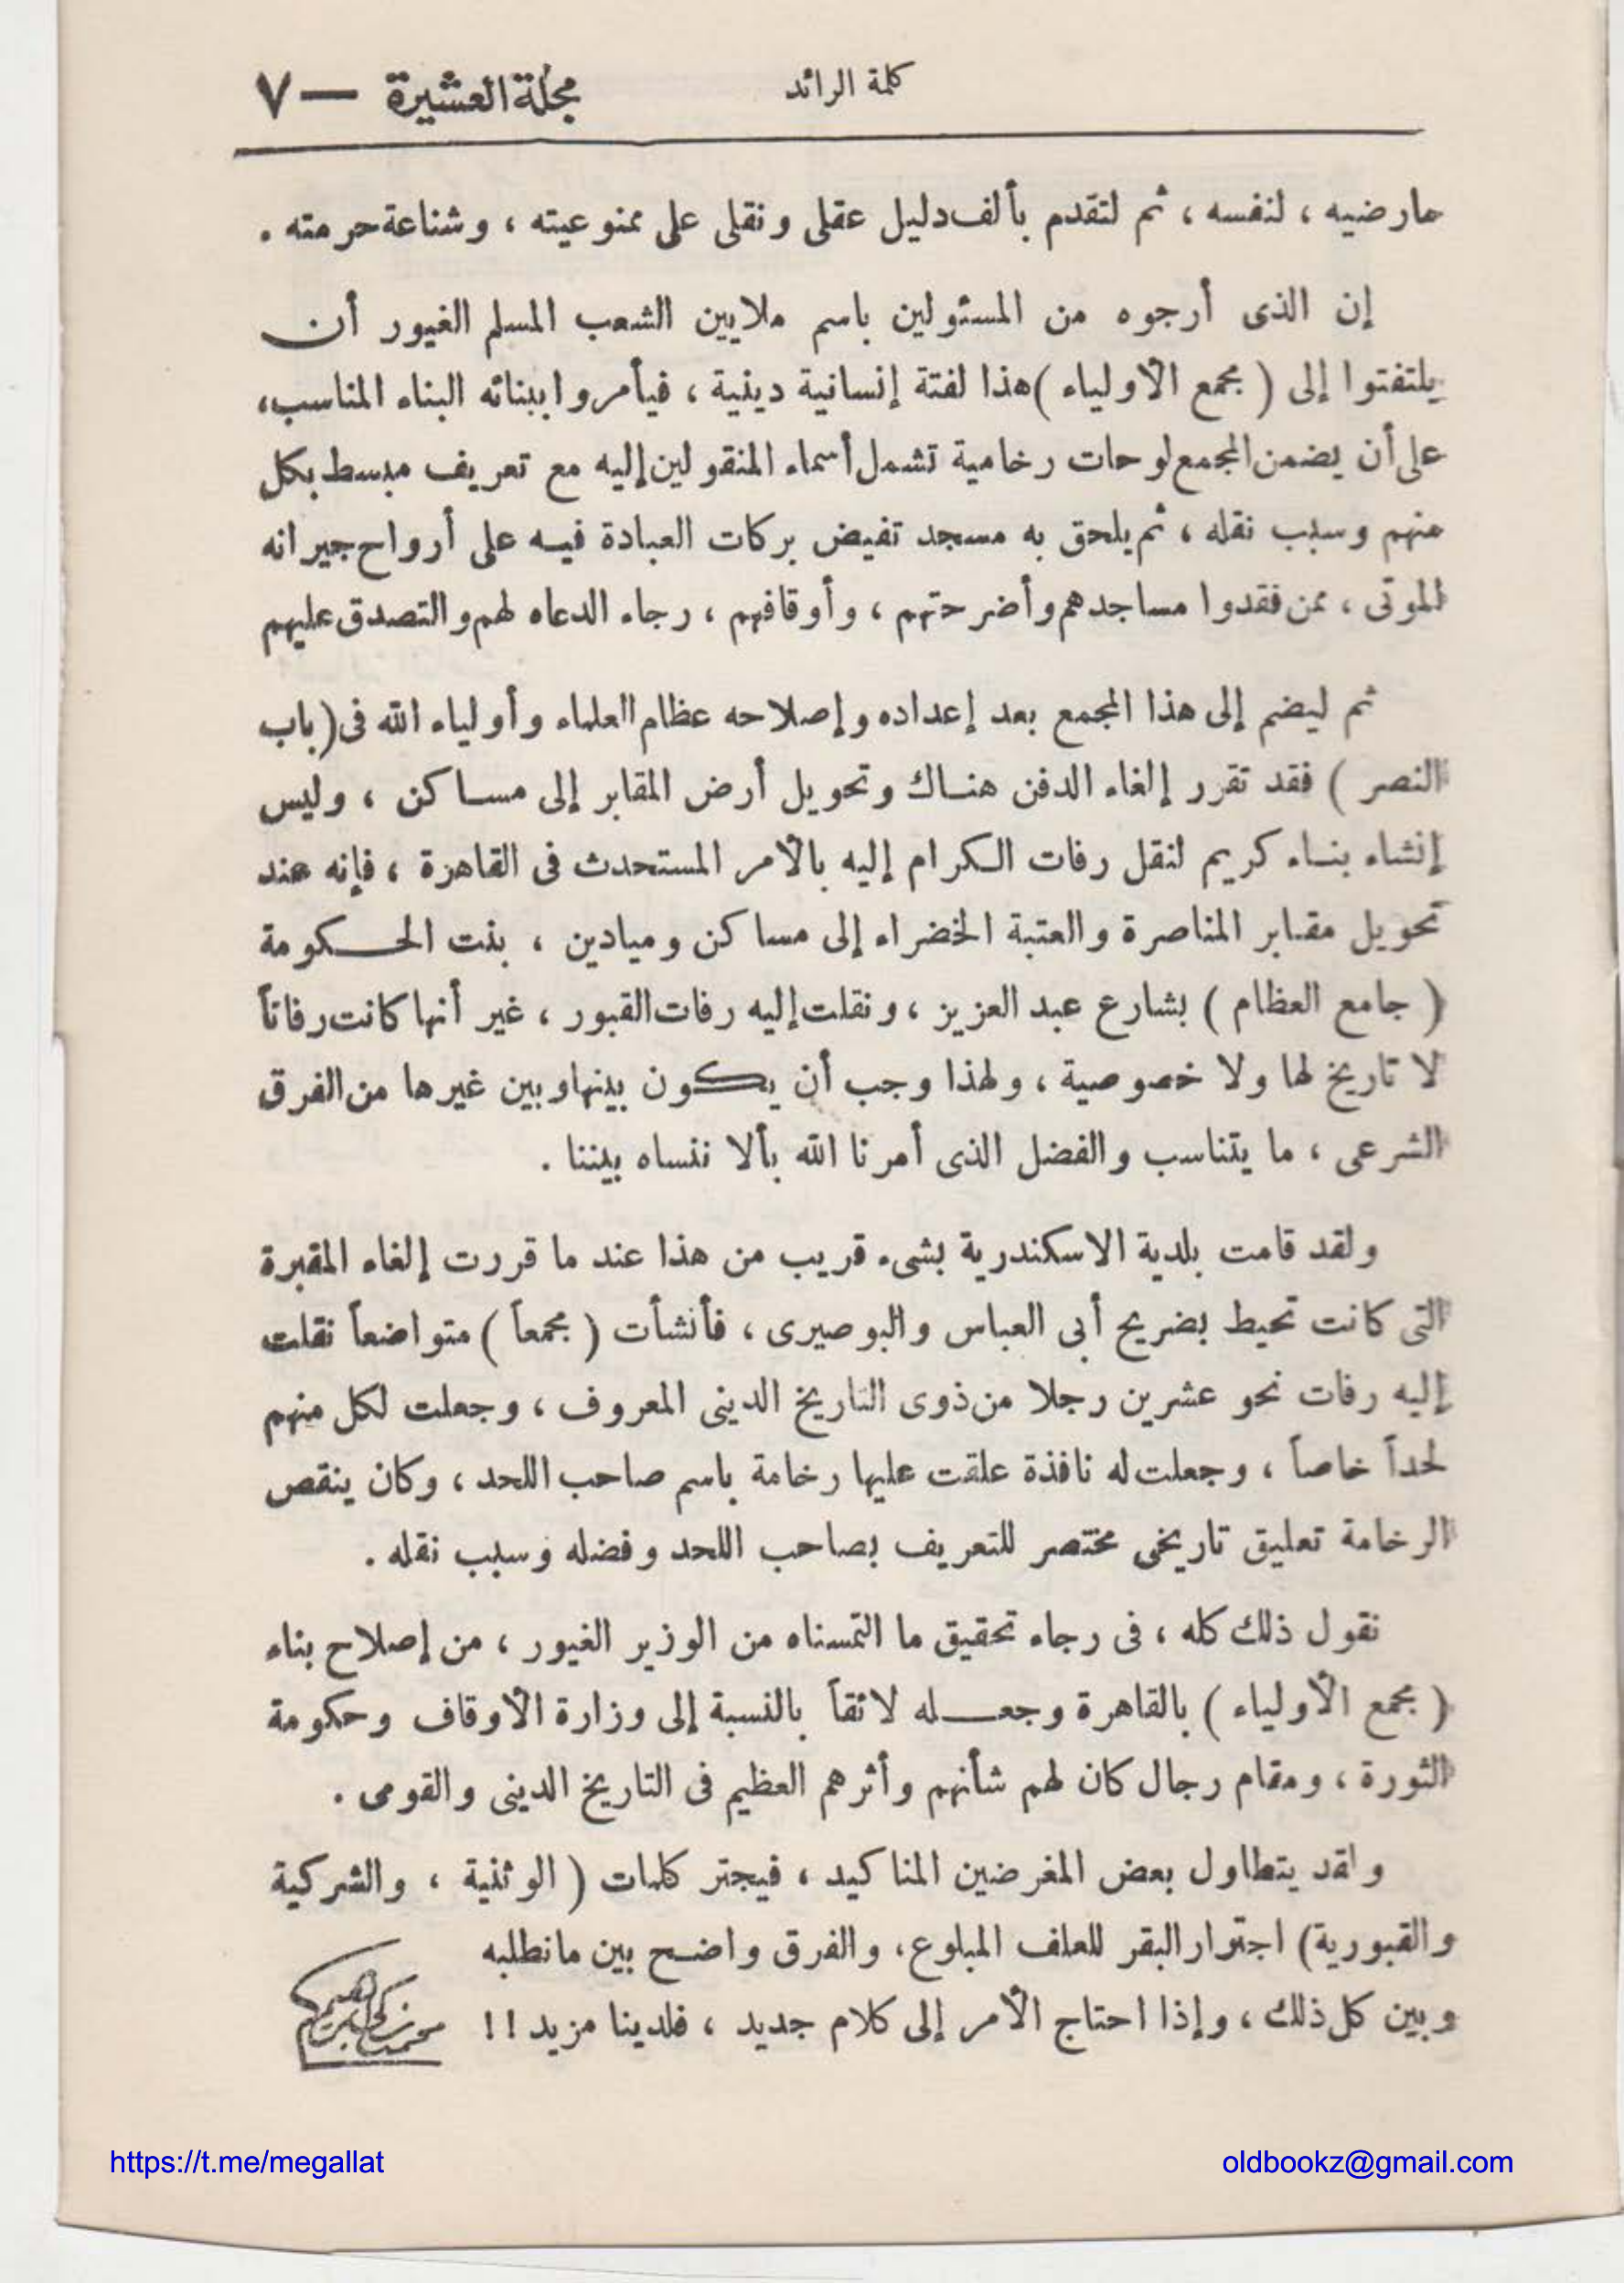 كلمة الرائد
مجلة العشيرة — ٧
عارضيه ، لنفسه ، ثم لتقدم بألف دليل عقلى ونقلى على ممنوعيته ، وشناعة حرمته .
إن الذى أرجوه من المسئولين باسم ملايين الشعب المسلم الغيور أن
يلتفتوا إلى ( مجمع الأولياء ) هذا لفتة إنسانية دينية ، فيأمروا ببنائه البناء المناسب،
على أن يضمن المجمع لوحات رخامية تشمل أسماء المنقولين إليه مع تعريف مبسط بكل
منهم وسبب نقله ، ثم يلحق به مسجد تفيض بركات العبادة فيه على أرواح جيرانه
الموتى ، ممن فقدوا مساجدهم وأضرحتهم ، وأوقافهم ، رجاء الدعاء لهم والتصدق عليهم
ثم ليضم إلى هذا المجمع بعد إعداده وإصلاحه عظام العلماء وأولياء الله فى ( باب
النصر ) فقد تقرر إلغاء الدفن هناك وتحويل أرض المقابر إلى مساكن ، وليس
إنشاء بناء كريم لنقل رفات الكرام إليه بالأمر المستحدث فى القاهرة ، فإنه عند
تحويل مقابر المناصرة والعتبة الخضراء إلى مساكن وميادين ، بنت الحكومة
( جامع العظام ) بشارع عبد العزيز ، ونقلت إليه رفات القبور ، غير أنها كانت رفاتاً
لا تاريخ لها ولا خصوصية ، ولهذا وجب أن يكون بينها وبين غيرها من الفرق
الشرعى ، ما يتناسب والفضل الذى أمرنا الله بألا ننساه بيننا .
ولقد قامت بلدية الاسكندرية بشىء قريب من هذا عند ما قررت إلغاء المقبرة
التى كانت تحيط بضريح أبى العباس والبوصيرى ، فأنشأت ( مجمعاً ) متواضعاً نقلت
إليه رفات نحو عشرين رجلا من ذوى التاريخ الدينى المعروف ، وجعلت لكل منهم
لحداً خاصاً ، وجعلت له نافذة علقت عليها رخامة باسم صاحب اللحد ، وكان ينقص
الرخامة تعليق تاريخى مختصر للتعريف بصاحب اللحد وفضله وسبب نقله .
نقول ذلك كله ، فى رجاء تحقيق ما التمسناه من الوزير الغيور ، من إصلاح بناء
( مجمع الأولياء ) بالقاهرة وجعله لائقاً بالنسبة إلى وزارة الأوقاف وحكومة
الثورة ، ومقام رجال كان لهم شأنهم وأثرهم العظيم فى التاريخ الدينى والقومى .
ولقد يتطاول بعض المغرضين المناكيد ، فيجتر كلمات ( الوثنية ، والشركية
والقبورية) اجترار البقر للعلف المبلوع، والفرق واضح بين مانطلبه
وبين كل ذلك ، وإذا احتاج الأمر إلى كلام جديد ، فلدينا مزيد !!
محمد زكى إبراهيم
https://t.me/megallat
oldbookz@gmail.com